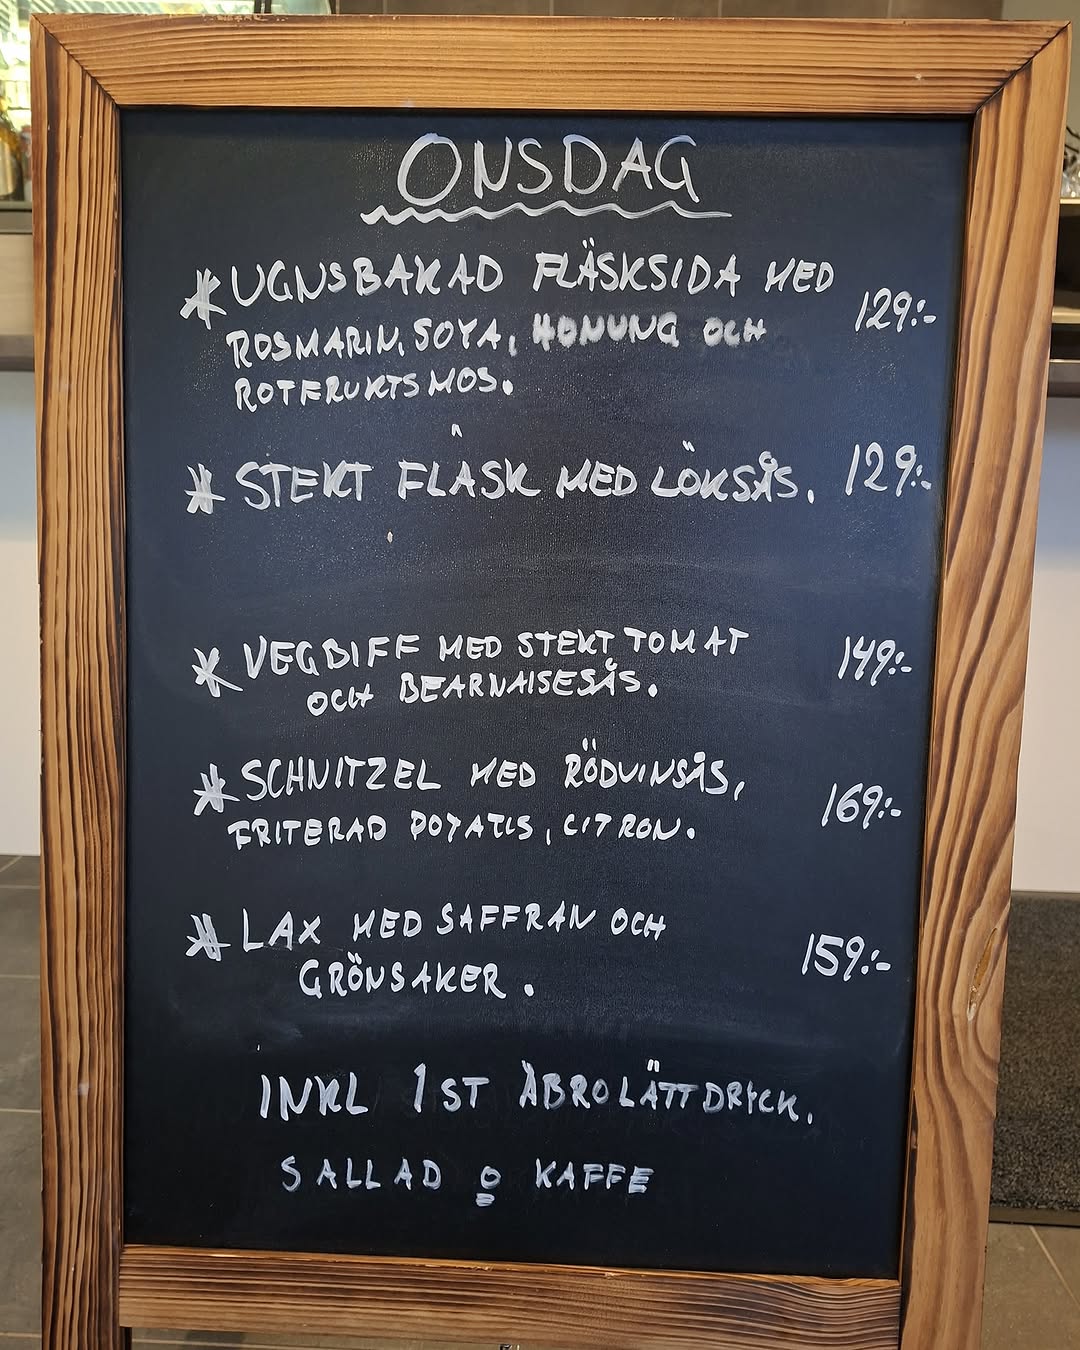 ONSDAG
* UGNSBAKAD FLÄSKSIDA MED
ROSMARIN, SOYA, HONUNG OCH 129:-
ROTFRUKTSMOS.
* STEKT FLÄSK MED LÖKSÅS. 129:-
* VEGBIFF MED STEKT TOMAT 149:-
OCH BEARNAISESÅS.
* SCHNITZEL MED RÖDVINSÅS,
FRITERAD POTATIS, CITRON. 169:-
* LAX MED SAFFRAN OCH
GRÖNSAKER. 159:-
INKL 1 ST ÅBRO LÄTTDRYCK.
SALLAD o KAFFE